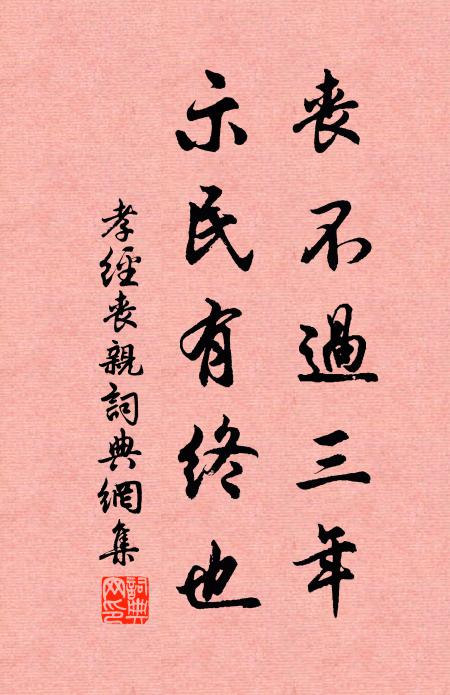 喪不過三年
示民有終也
孝經喪親詞典網集
詞典網印